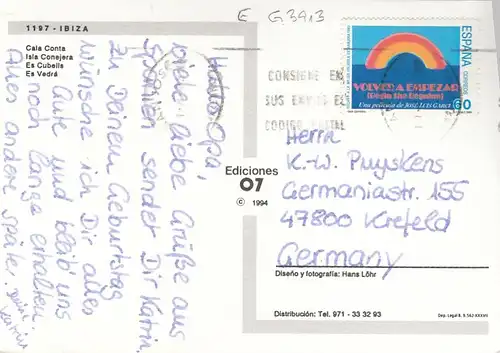 1197 - IBIZA
Cala Conta
Isla Conejera
Es Cubells
Es Vedrá
E G.3913
Hallo Opa,
viele liebe Grüße aus
Spanien sendet Dir Katrin.
Zu Deinem Geburtstag
wünsche ich Dir alles
Gute und bleib' uns
noch lange erhalten.
Alles andere später. Deine
Katrin
Ediciones
07
© 1994
CONSIGNE EN
SUS ENVIOS EL
CODIGO POSTAL
ESPAÑA
CORREOS
VOLVER A EMPEZAR
(Begin the Beguine)
Una película de JOSÉ LUIS GARCI
60
Herrn
K.-W. Puyskens
Germaniastr. 155
47800 Krefeld
Germany
Diseño y fotografía: Hans Löhr
Distribución: Tel. 971 - 33 32 93